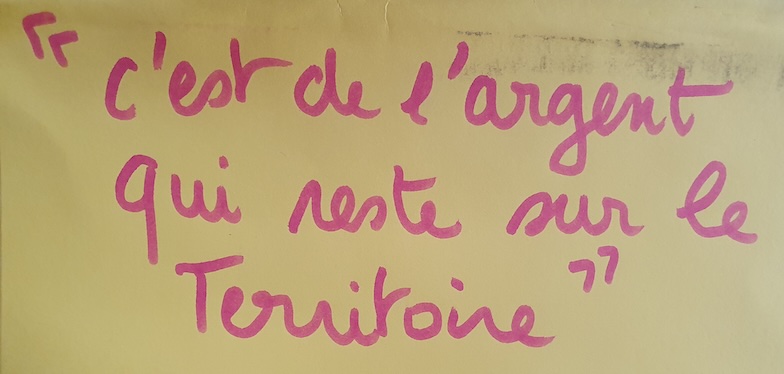 "c'est de l'argent
qui reste sur le
Territoire"